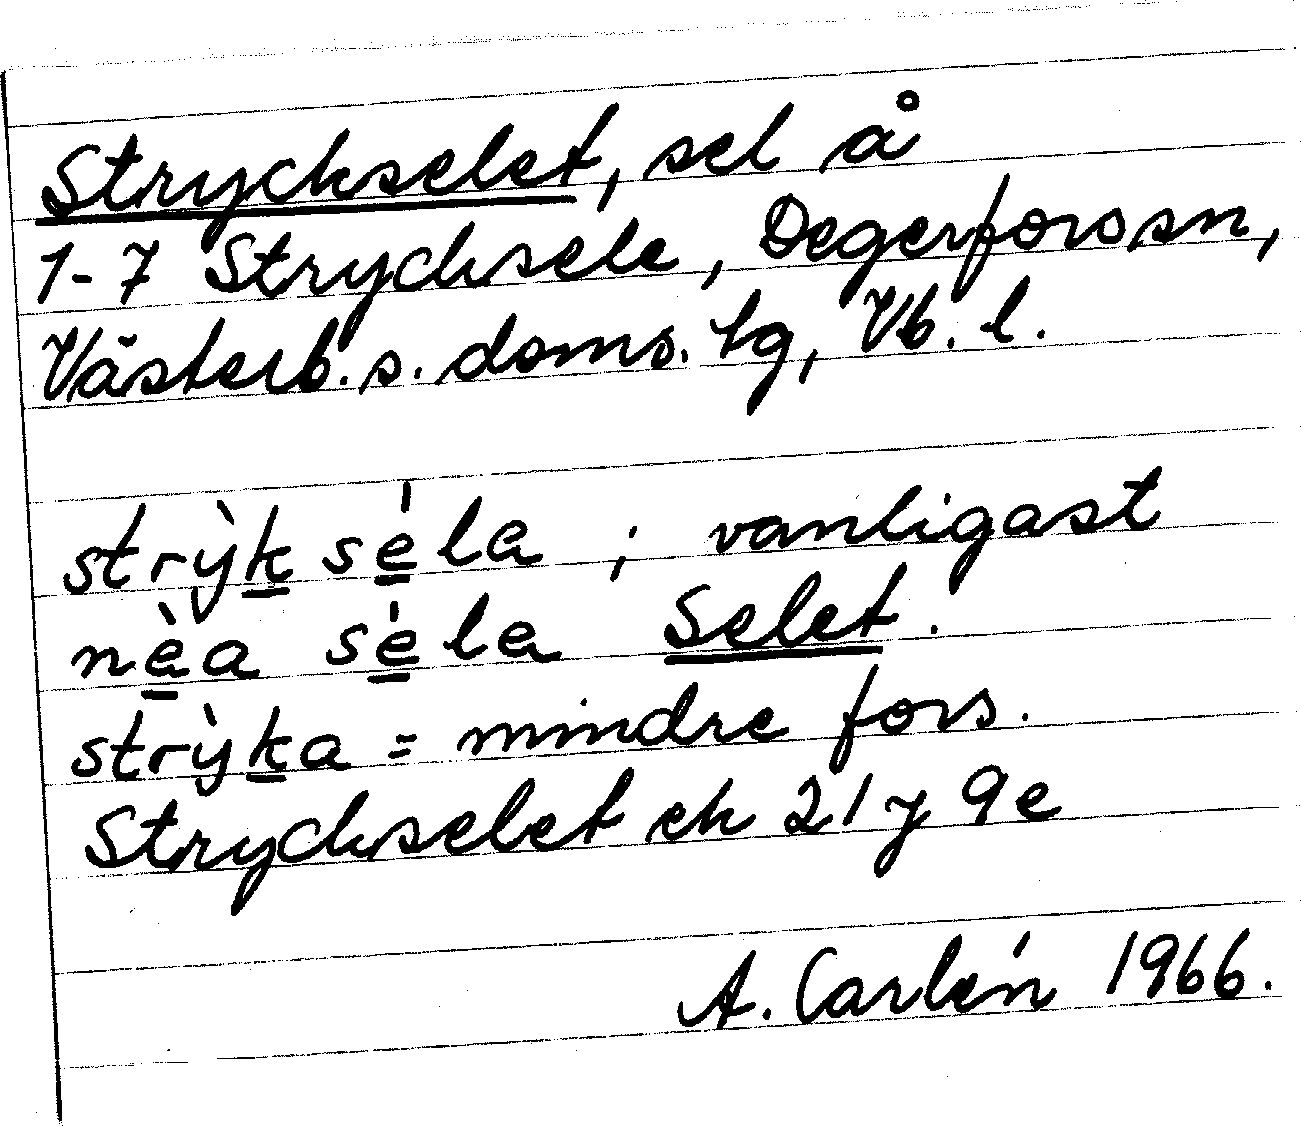 Stryckselet, sel å
1-7 Strycksele, Degerforssn,
Västerb. s. doms. tg, Vb. l.
strỳk séla ; vanligast
nèa séla Selet.
strỳka = mindre fors.
Stryckselet ek 21 y 9e
A. Carlén 1966.